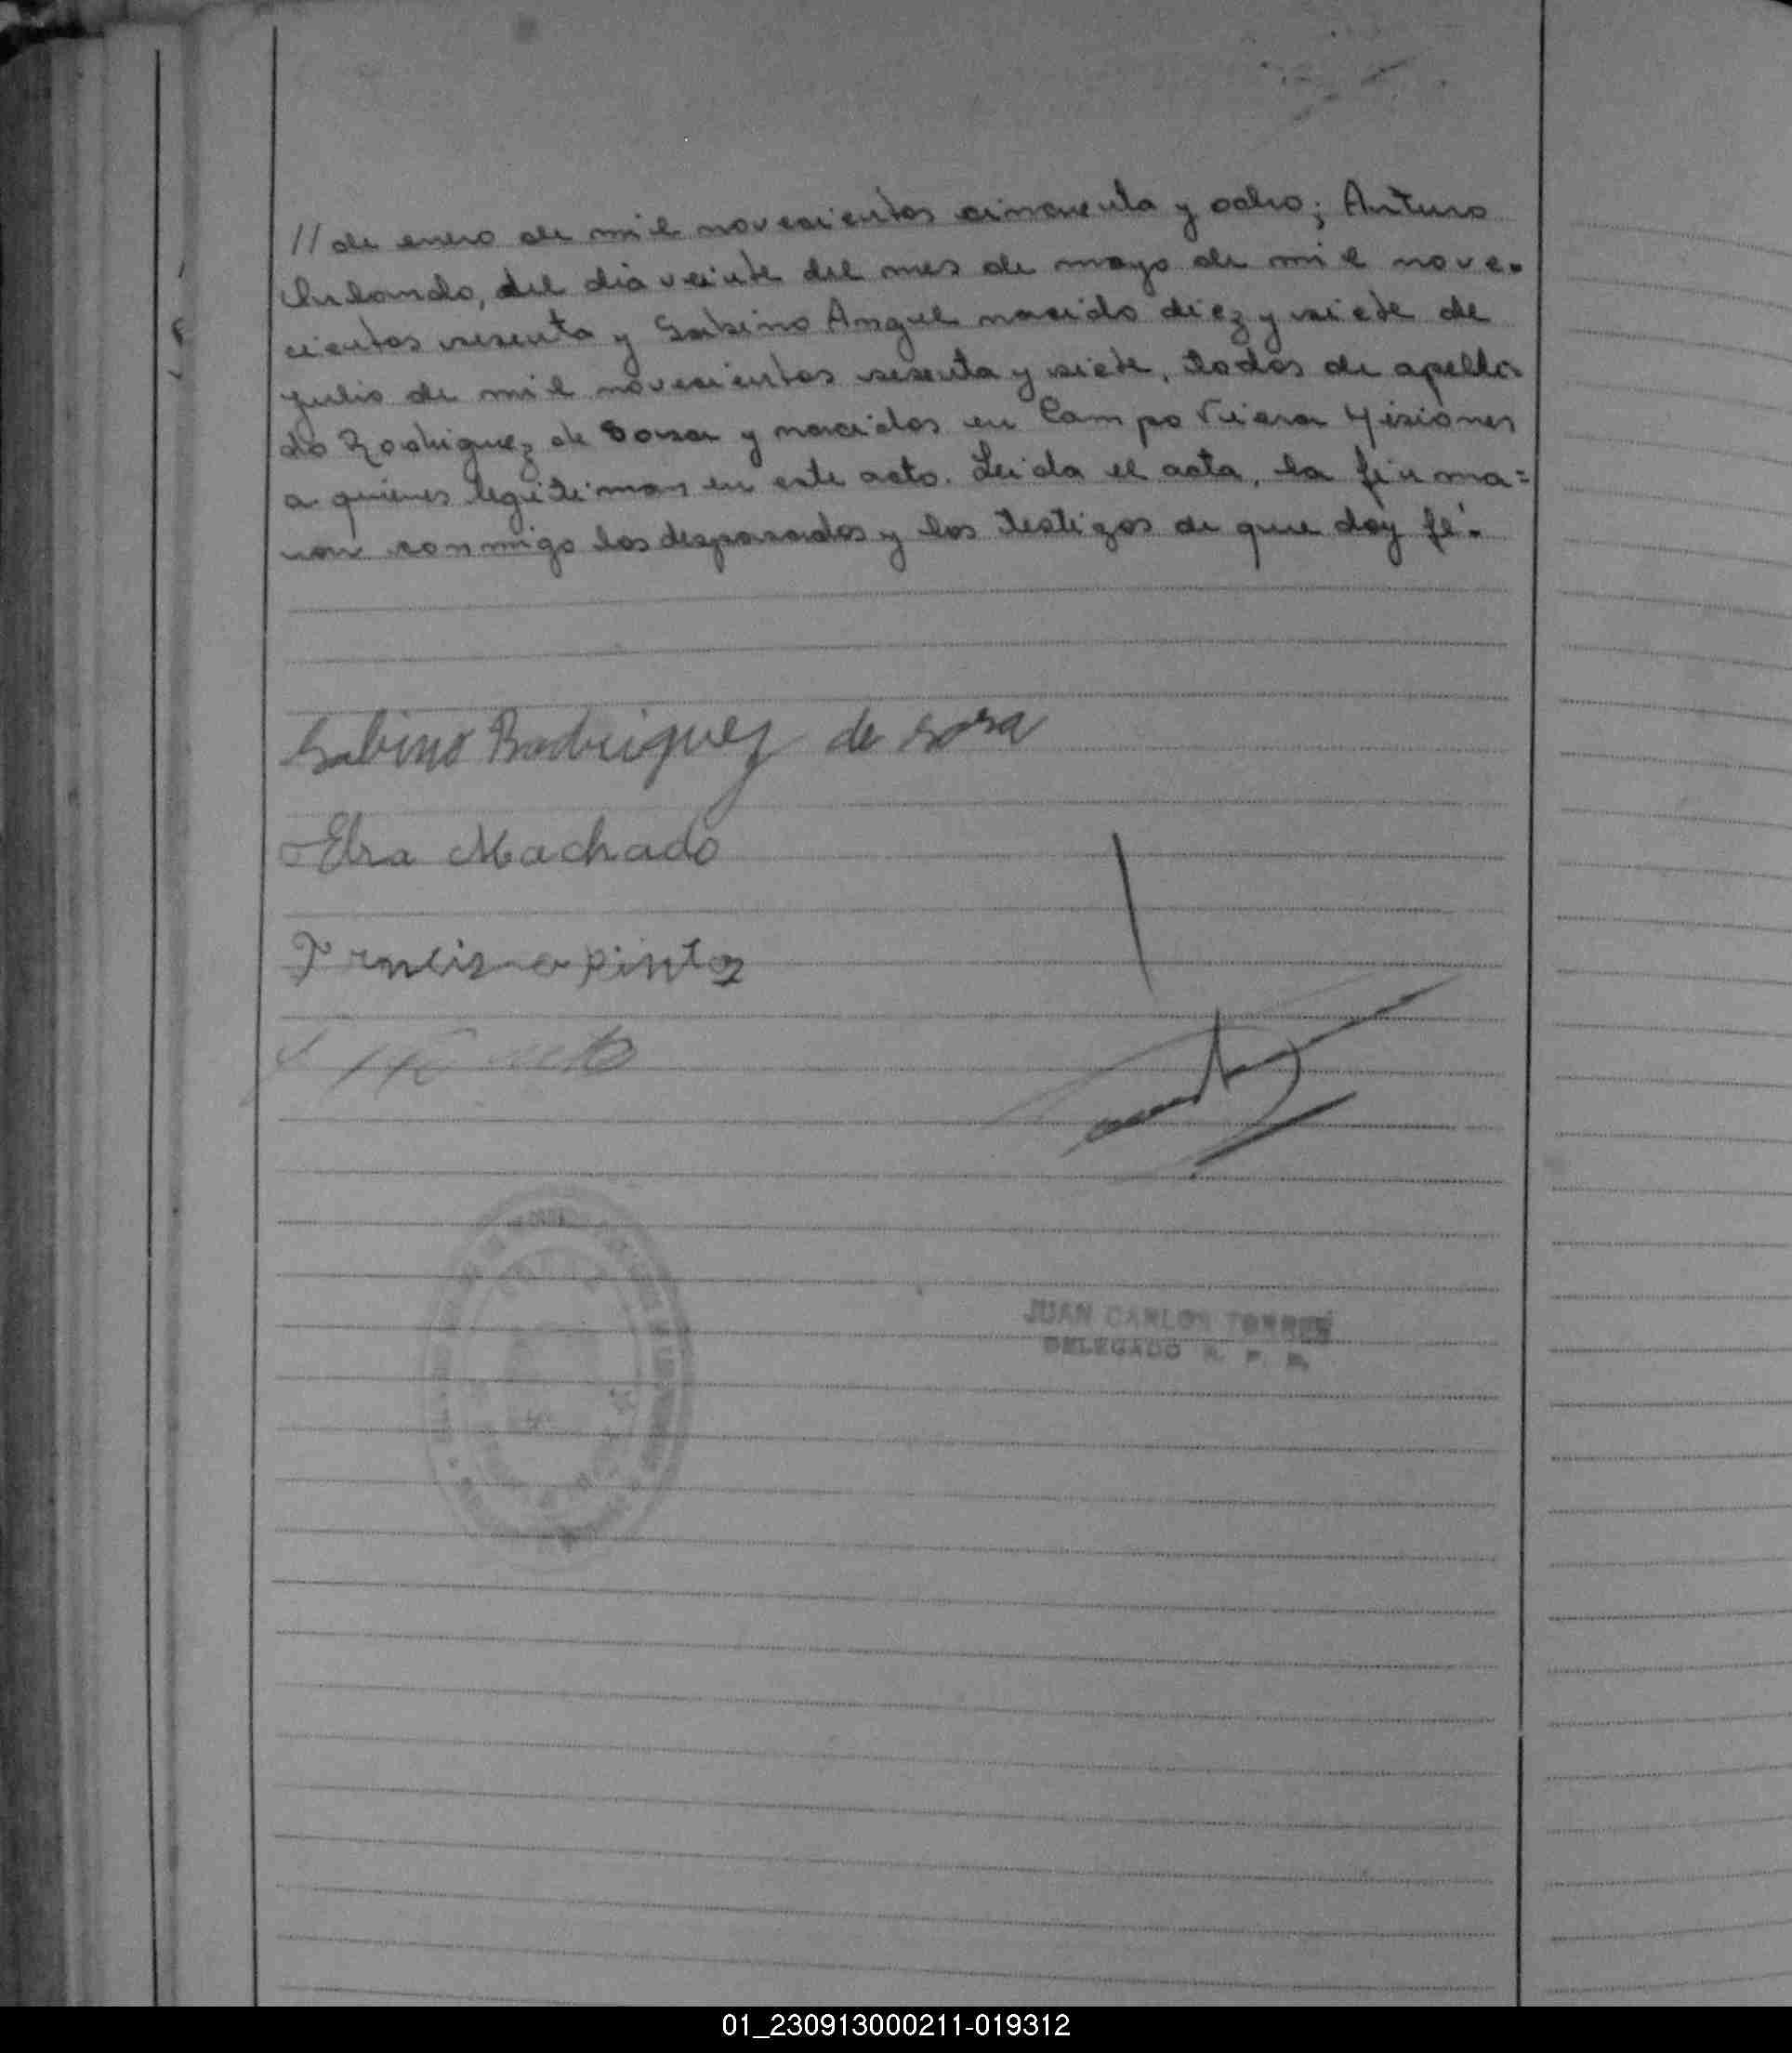 // de enero de mil novecientos cincuenta y ocho; Arturo
del dia veinte del mes de mayo de mil nove-
cientos sesenta y Sabino Angel nacido diez y siete de
julio de mil novecientos sesenta y siete, todos de apelli-
do Rodriguez de Sosa y nacidos en Campo Viera Misiones
a quienes legitiman en este acto. Leida el acta, la firma=
ron conmigo los desposados y los testigos de que doy fé.
Sabino Rodriguez de Sosa
Elsa Machado
Francisco Pinto
JUAN CARLOS TORRES
DELEGADO R. P. P.
01_230913000211-019312